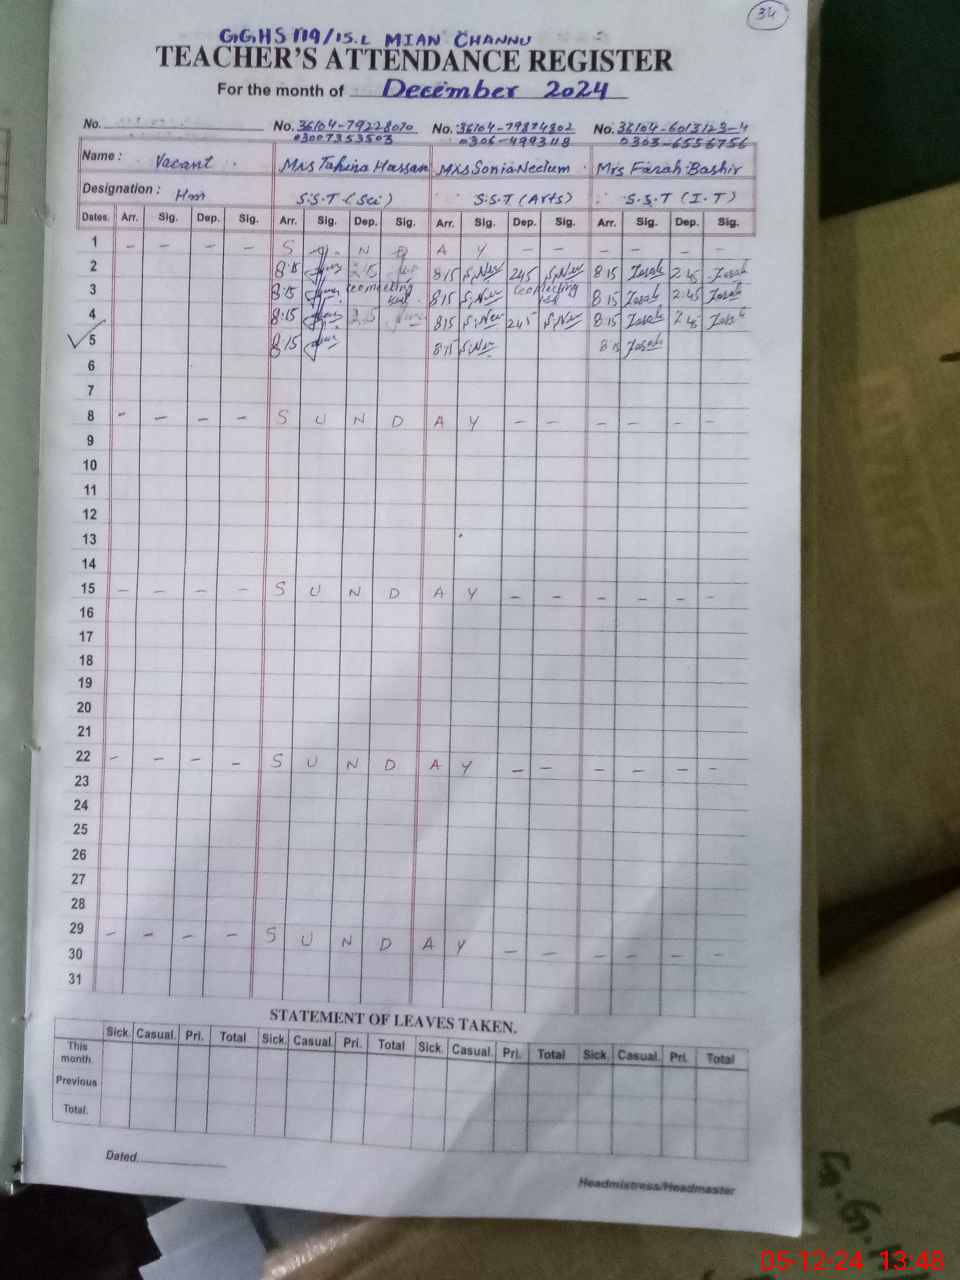 34
G.G.H.S 119/15.L MIAN CHANNU
TEACHER'S ATTENDANCE REGISTER
For the month of December 2024
No. No. 36104-79228070 No. 36104-79874802 No. 36104-6013123-4
03007353503 0306-4993118 0303-6556756
Name : Vacant Mrs Tahira Hassan Mrs Sonia Neelum Mrs Farah Bashir
Designation : Hm S.S.T (Sci) S.S.T (Arts) S.S.T (I.T)
Dates. Arr. Sig. Dep. Sig. Arr. Sig. Dep. Sig. Arr. Sig. Dep. Sig. Arr. Sig. Dep. Sig.
1 - - - - S N D A Y - - - - -
2 8:15 2:15 8:15 S.Nee 245 S.Nee 8:15 Farah 2:45 Farah
3 8:15 8:15 S.Nee 8:15 Farah 2:45 Farah
4 8:15 2:15 8:15 S.Nee 245 S.Nee 8:15 Farah 2:45 Farah
5 8:15 8:15 S.Nee 8:15 Farah
6
7
8 - - - - S U N D A Y - - - - - -
9
10
11
12
13
14
15 - - - - S U N D A Y - - - - - -
16
17
18
19
20
21
22 - - - - S U N D A Y - - - - - -
23
24
25
26
27
28
29 - - - - S U N D A Y - - - - - -
30
31
STATEMENT OF LEAVES TAKEN.
Sick. Casual. Pri. Total Sick. Casual. Pri. Total Sick. Casual. Pri. Total Sick. Casual. Pri. Total
This
month.
Previous
Total.
Dated
Headmistress/Headmaster
05-12-24 13:48